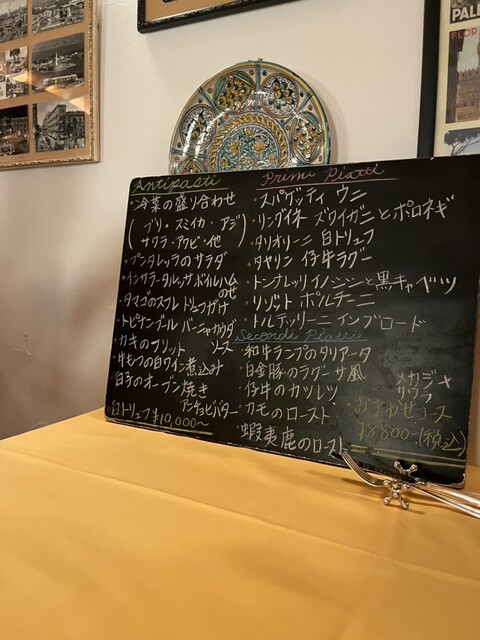 PAL
FLOR
Antipasti
・冷菜の盛り合わせ
(ブリ・スミイカ・アジ
サワラ・アワビ・他)
・プンタレッラのサラダ
・インサラータルッサ ボイルハム
のせ
・タマゴのスフレ トリュフがけ
・トピナンブール バーニャカウダ
ソース
・カキのフリット
・牛もつの白ワイン煮込み
・白子のオーブン焼き
アンチョビバター
・白トリュフ ¥10,000〜
Primi Piatti
・スパゲッティ ウニ
・リングイネ ズワイガニとポロネギ
・タリオリーニ 白トリュフ
・タヤリン 仔牛ラグー
・トンナレッリ イノシシと黒キャベツ
・リゾット ポルチーニ
・トルテッリーニ インブロード
Secondi Piatti
・和牛ランプのタリアータ
・白金豚のラグーサ風
・仔牛のカツレツ
・カモのロースト
・蝦夷鹿のロースト
メカジキ
サワラ
おまかせコース
¥8800-(税込)